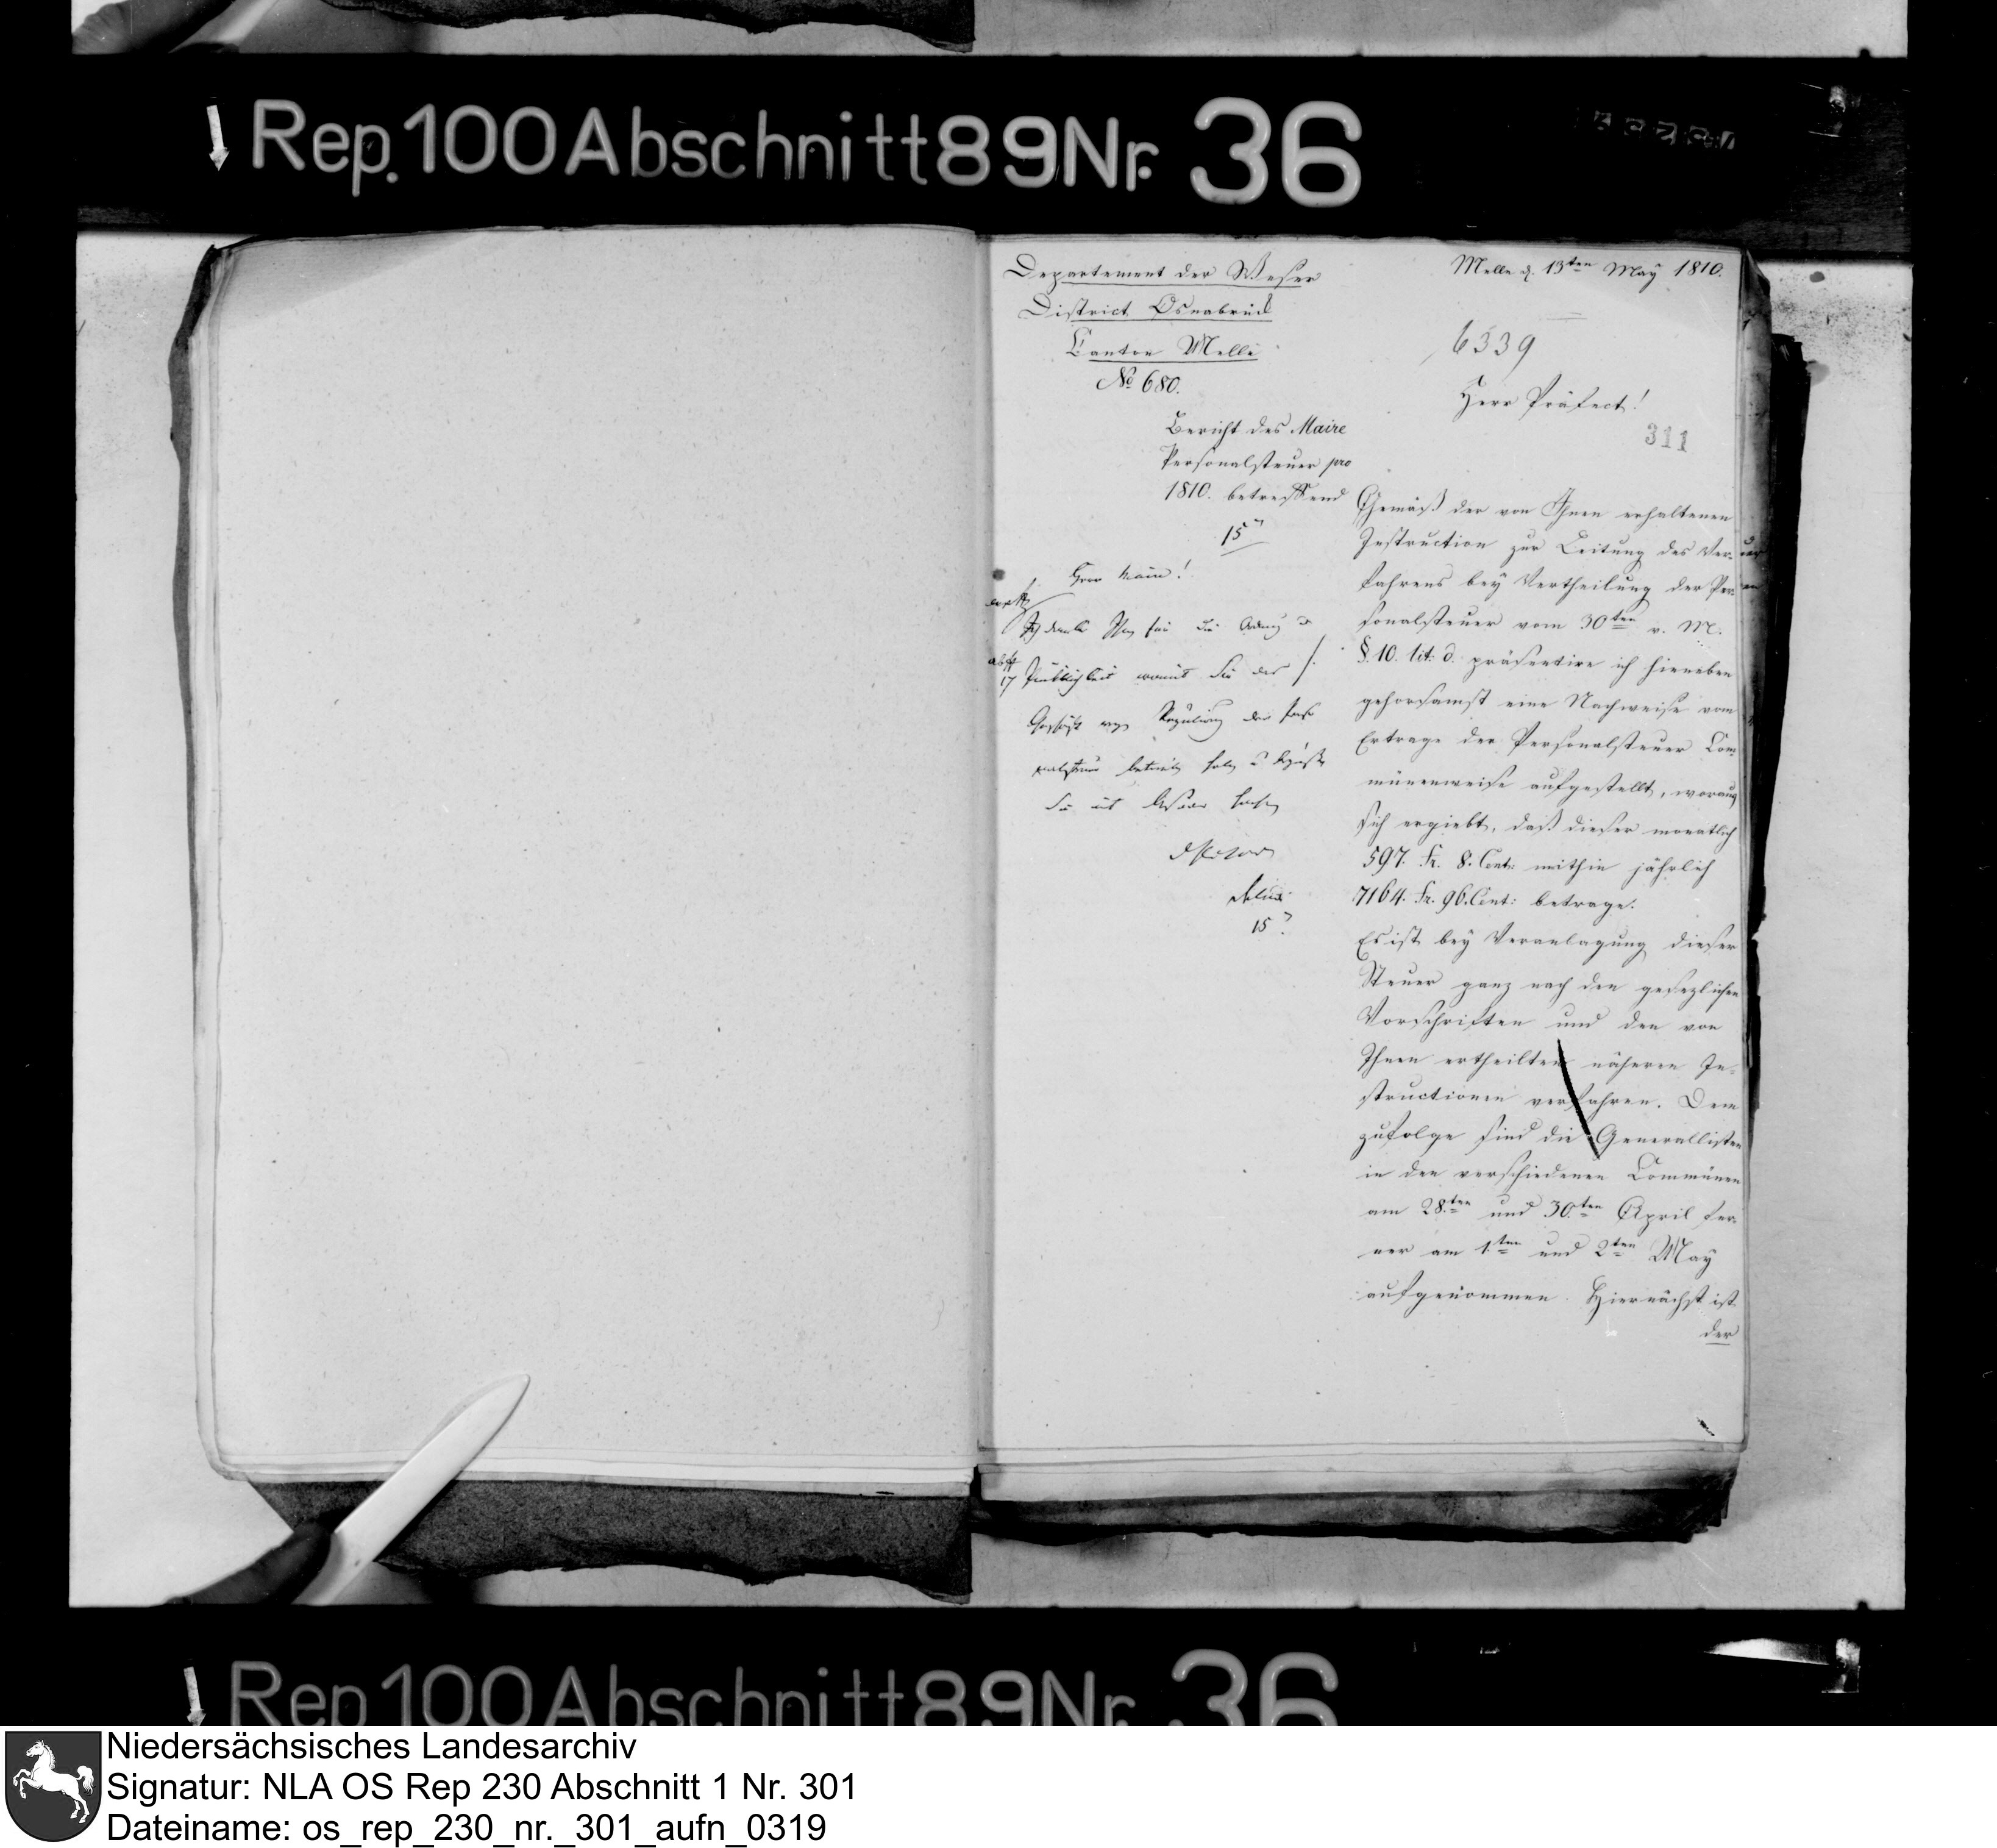 Rep. 100 Abschnitt 89 Nr. 36
Departement der Weser
District Osnabrück
Canton Melle
No 680.
Bericht des Maire
Personalsteuer pro
1810. betreffend
15
Herr Maire!
Ich danke Ihnen für die Ordnung u
Pünktlichkeit womit Sie das
Geschäft wegen Regulirung der Perso
nalsteuer betrieben haben
Sie
Delius
15
Melle d. 13ten May 1810.
6339
Herr Präfect!
311
Gemäß der von Ihnen erhaltenen
Instruction zur Leitung des Ver-
fahrens bey Vertheilung der Per-
sonalsteuer vom 30ten v. M.
§. 10. lit. d. präsentire ich hieneben
gehorsamst eine Nachweise vom
Ertrage der Personalsteuer Com
münenweise aufgestellt, woraus
sich ergiebt, daß dieser monatlich
597. Fr. 8. Cent: mithin jährlich
7164. Fr. 96. Cent: betrage.
Es ist bey Veranlagung dieser
Steuer ganz nach den gesezlichen
Vorschriften und den von
Ihnen ertheilten näheren In-
structionen verfahren. Dem
zufolge sind die Generallisten
in den verschiedenen Communen
am 28.ten und 30.ten April fer-
ner am 1ten und 2ten May
aufgenommen. Hiernächst ist
der
Rep. 100 Abschnitt 89 Nr. 36
Niedersächsisches Landesarchiv
Signatur: NLA OS Rep 230 Abschnitt 1 Nr. 301
Dateiname: os_rep_230_nr._301_aufn_0319